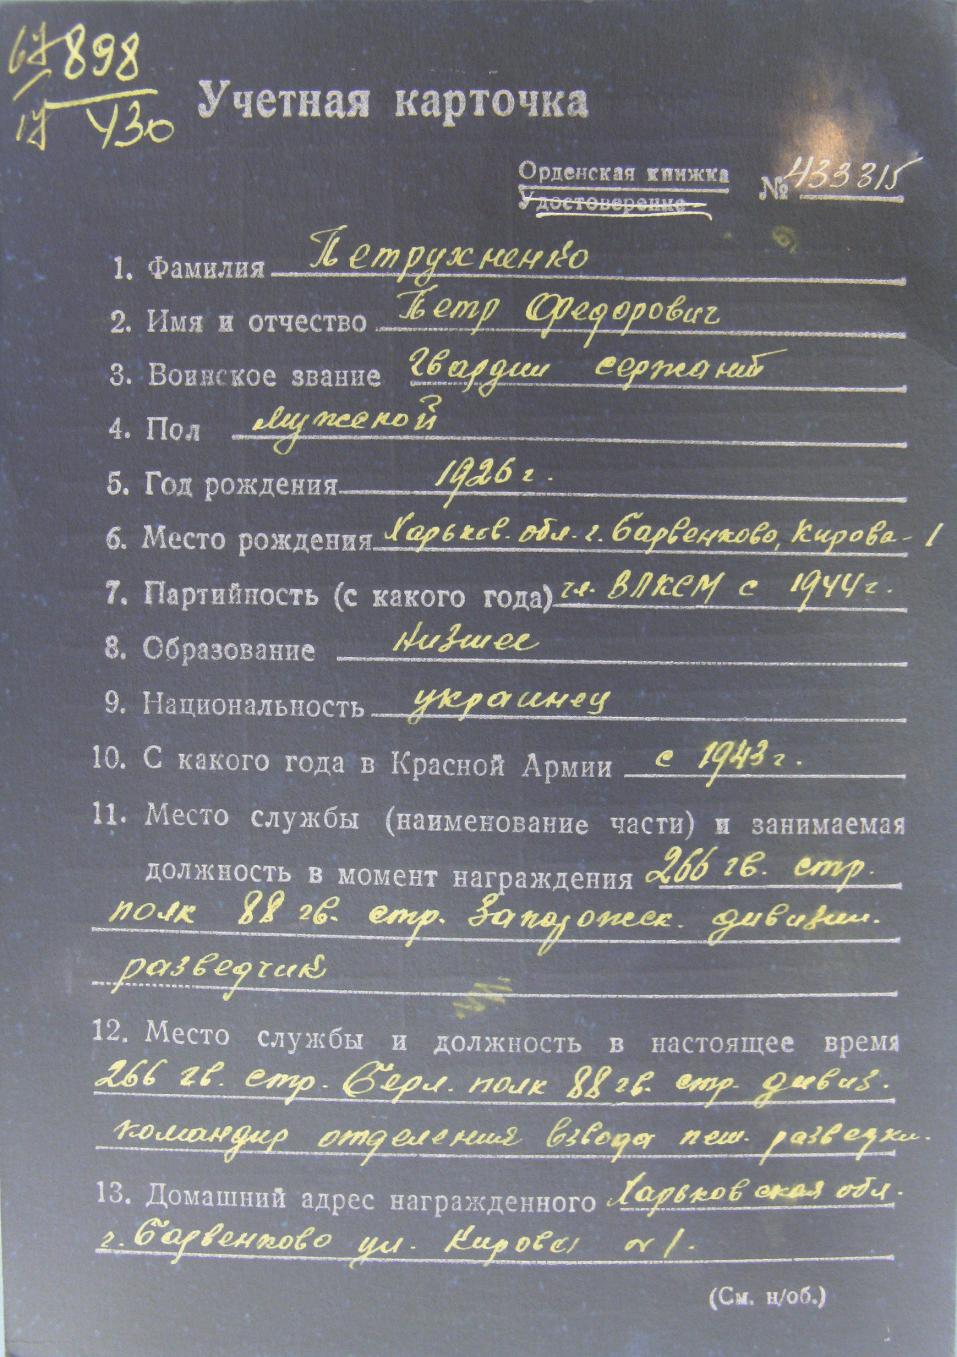 67 898
17 430
Учетная карточка
Орденская книжка № 433315
Удостоверение
1. Фамилия Петрухненко
2. Имя и отчество Петр Федорович
3. Воинское звание Гвардии сержант
4. Пол мужской
5. Год рождения 1926 г.
6. Место рождения Харьков. обл. г. Барвенково, Кирова-1
7. Партийность (с какого года) чл. ВЛКСМ с 1944 г.
8. Образование низшее
9. Национальность украинец
10. С какого года в Красной Армии с 1943 г.
11. Место службы (наименование части) и занимаемая
должность в момент награждения 266 гв. стр.
полк 88 гв. стр. Запорожск. дивизии.
разведчик
12. Место службы и должность в настоящее время
266 гв. стр. Берл. полк 88 гв. стр. дивиз.
командир отделения взвода пеш. разведки.
13. Домашний адрес награжденного Харьковская обл.
г. Барвенково ул. Кирова №1.
(См. н/об.)